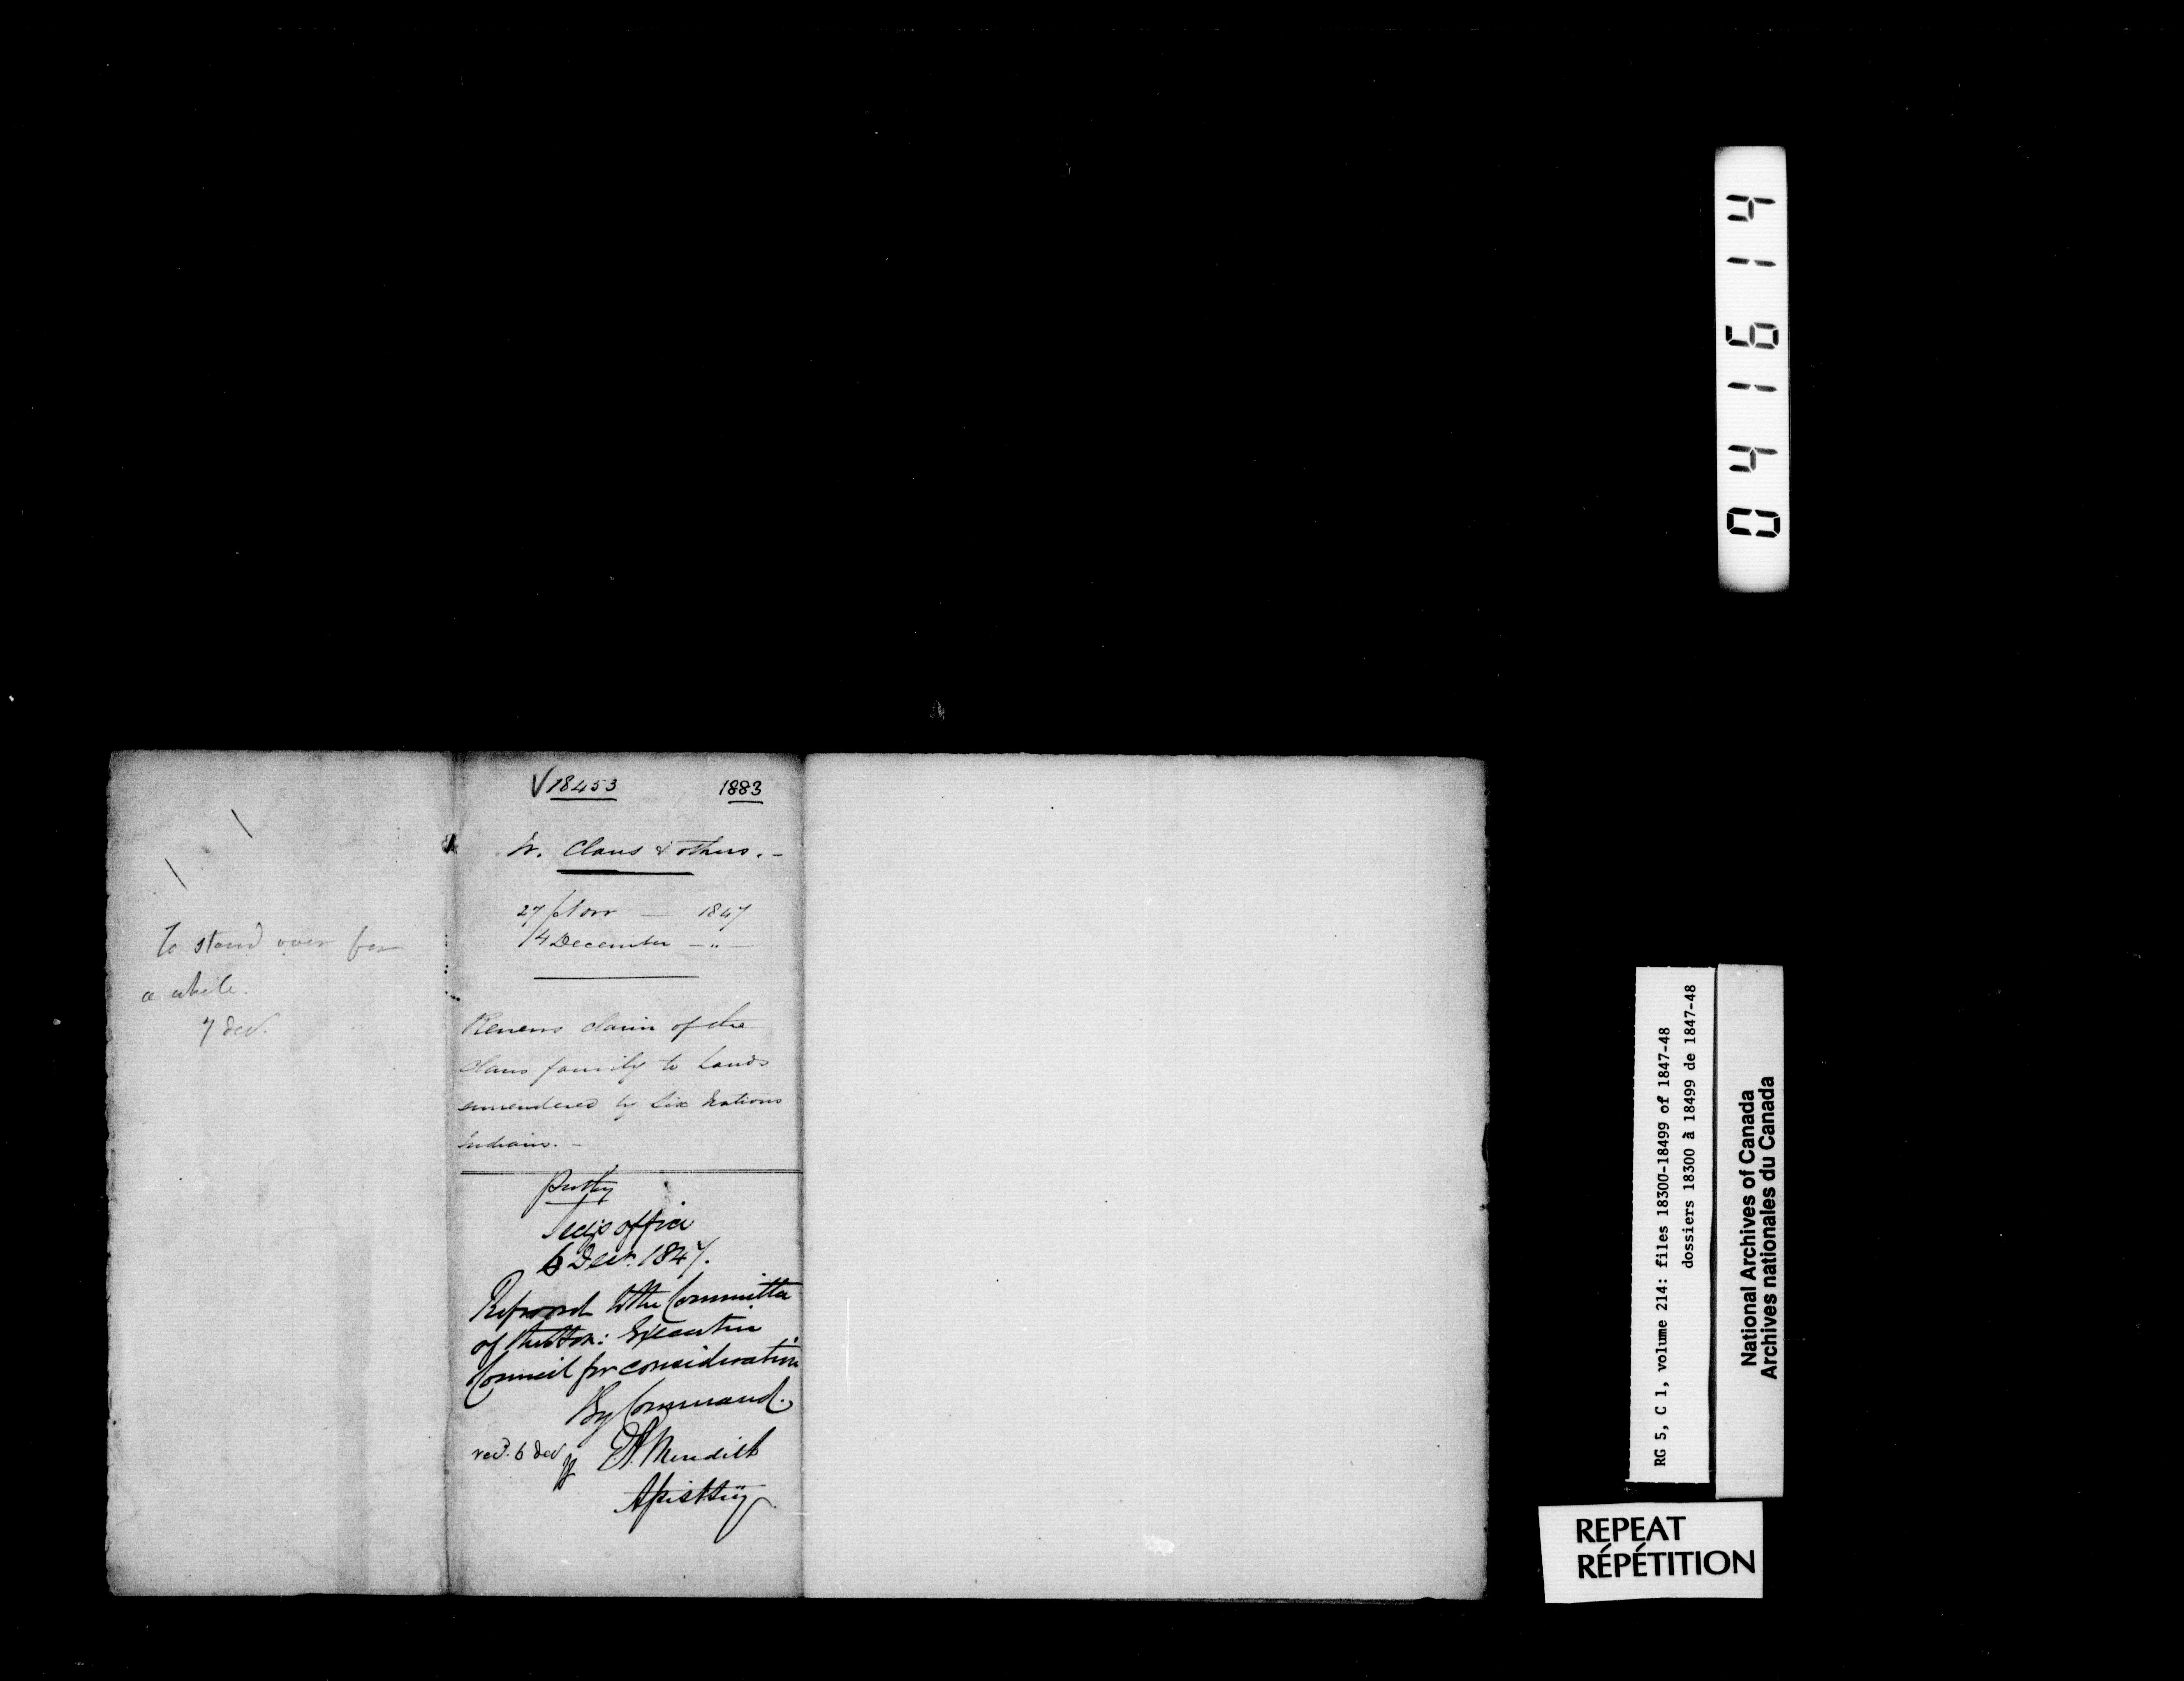 To stand over for
a while.
7 Dec.
18453 1883
W. Claus & others. -
27 Nov — 1847
4 December — " —
Renews claim of the
Claus family to Lands
surrendered by Six Nations
Indians. -
Secy's office
6 Decr. 1847.
Referred to the Committee
of the Hon: Executive
Council for consideration
By Command.
recd. 6 Dec
E A Meredith
Asst Secy
04 16 14
RG 5, C 1, volume 214: files 18300-18499 of 1847-48
dossiers 18300 à 18499 de 1847-48
National Archives of Canada
Archives nationales du Canada
REPEAT
RÉPÉTITION